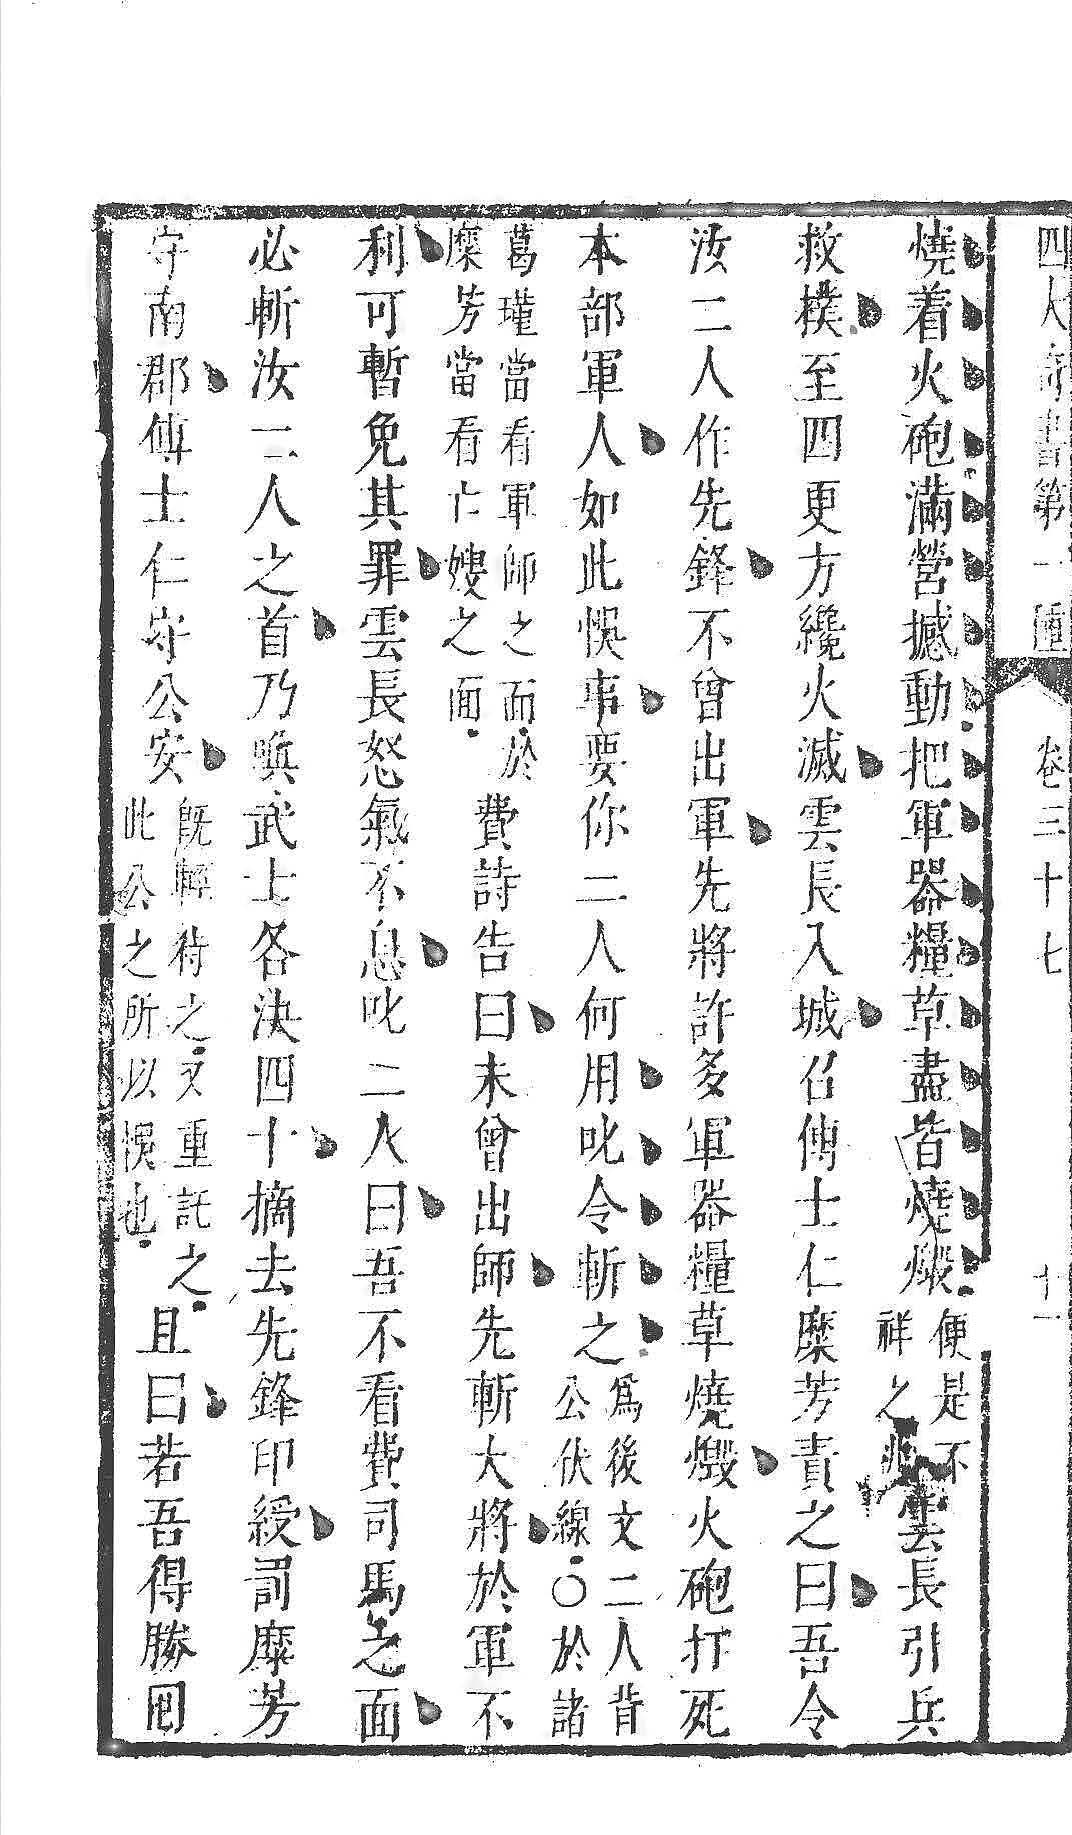 四大奇書第一種 卷三十七 十一
燒着火砲滿營撼動把軍器糧草盡皆燒燬便是不祥之兆雲長引兵
救撲至四更方纔火滅雲長入城召傅士仁糜芳責之曰吾令
汝二人作先鋒不曾出軍先將許多軍器糧草燒燬火砲打死
本部軍人如此悞事要你二人何用叱令斬之爲後文二人背公伏線○於諸
葛瑾當看軍師之面於糜芳當看亡嫂之面費詩告曰未曾出師先斬大將於軍不
利可暫免其罪雲長怒氣不息叱二人曰吾不看費司馬之面
必斬汝二人之首乃喚武士各決四十摘去先鋒印綬罰糜芳
守南郡傅士仁守公安既輕待之又重託之此公之所以悞也且曰若吾得勝囘